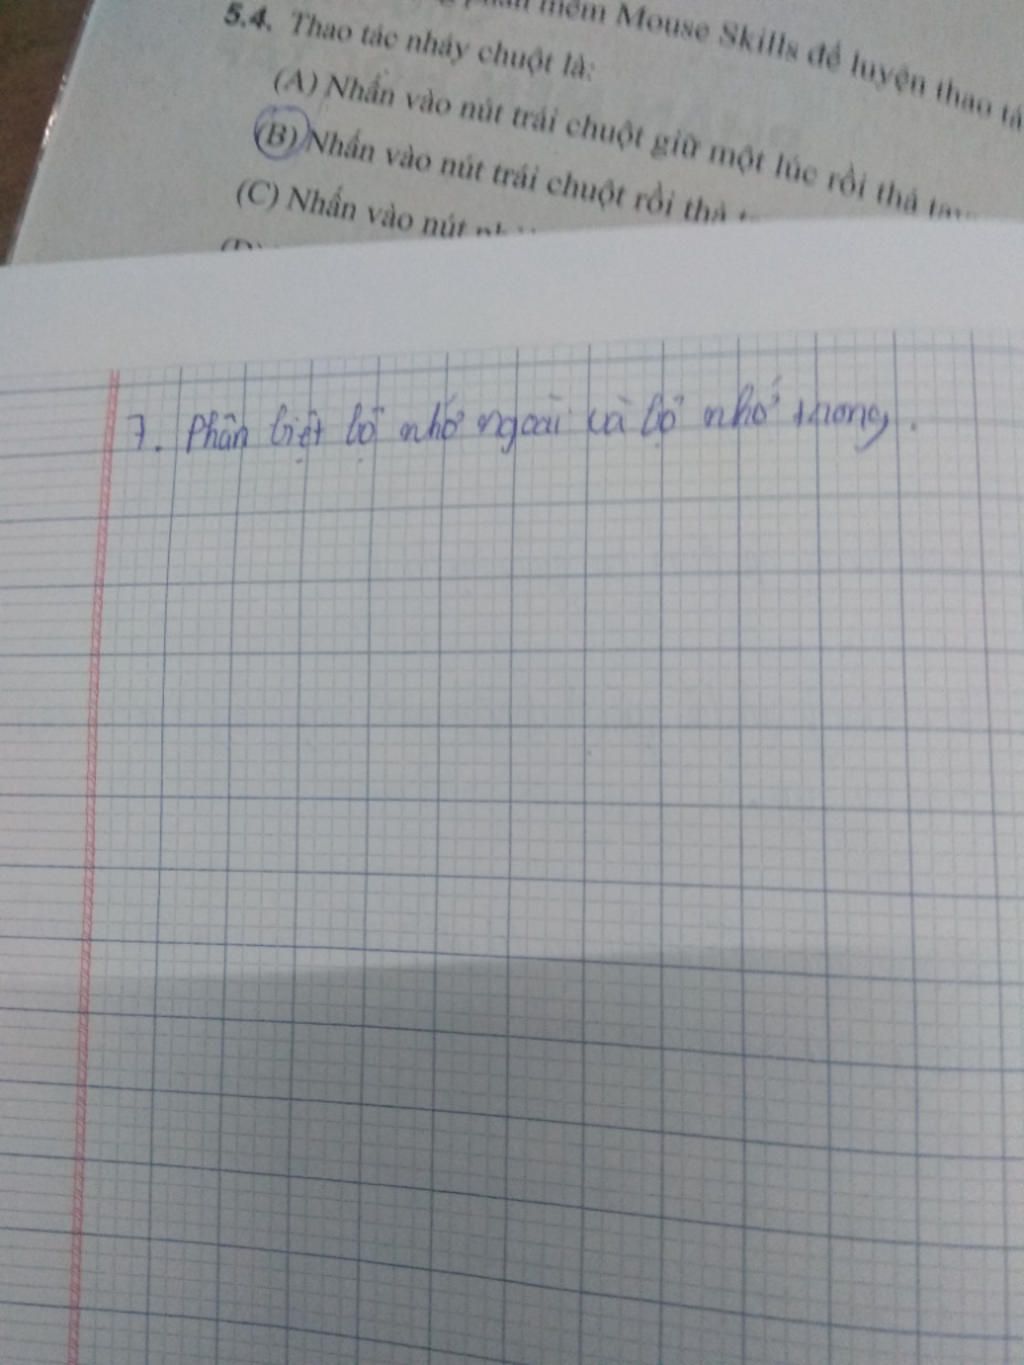 phần mềm Mouse Skills để luyện thao tá
5.4. Thao tác nháy chuột là:
(A) Nhấn vào nút trái chuột giữ một lúc rồi thả tay
(B) Nhấn vào nút trái chuột rồi thả
(C) Nhấn vào nút
7. Phân biệt bộ nhớ ngoài và bộ nhớ trong.